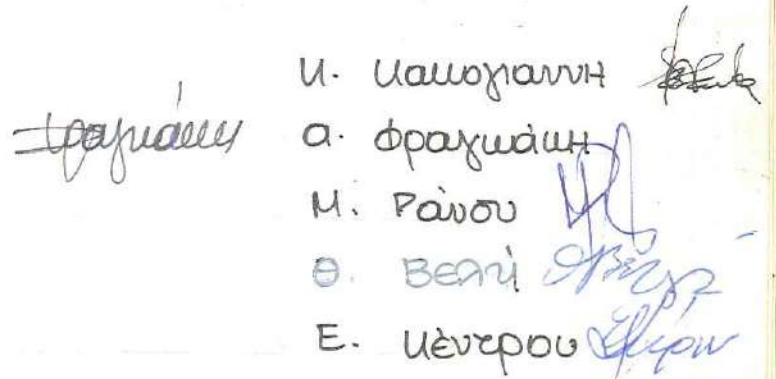 Κ. Κακογιαννη
Φραγκάκη Α. Φραγκάκη
Μ. Ράνου
Θ. Βελή
Ε. Κέντρου